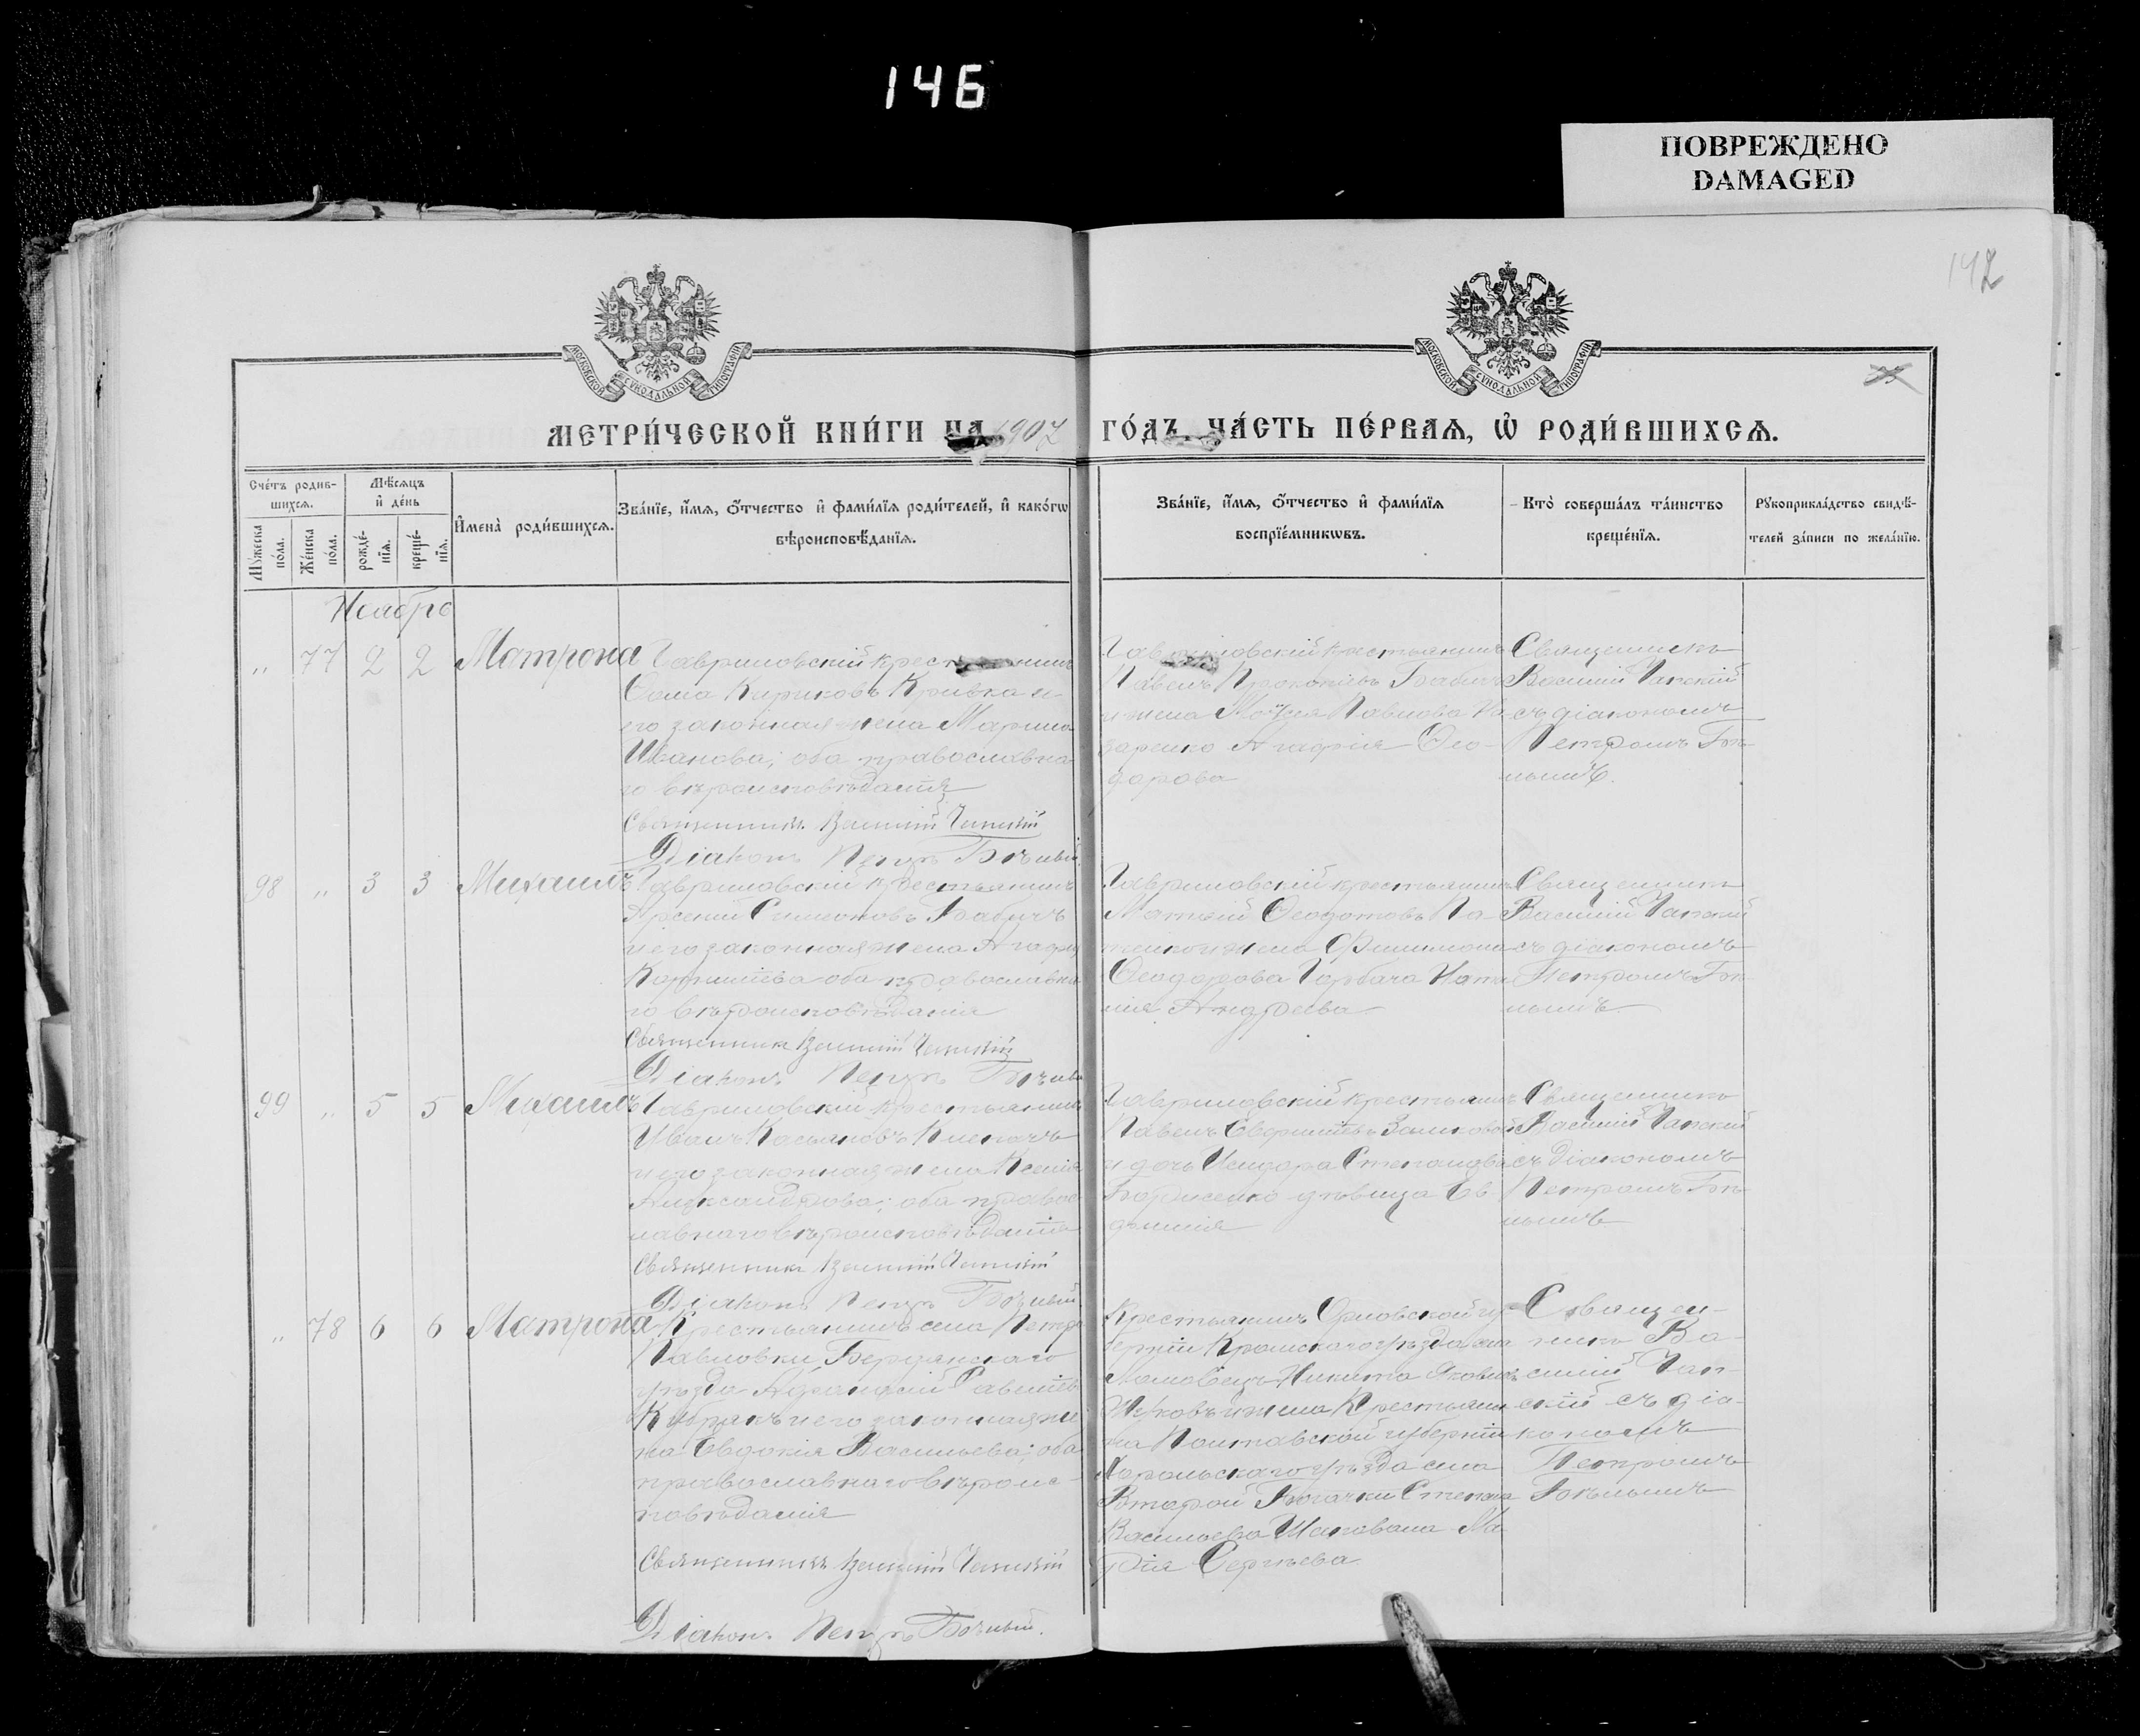 146
ПОВРЕЖДЕНО
DAMAGED
142
МОСКОВСКОЙ СУНОДАЛЬНОЙ ТИПОГРАФІИ
МОСКОВСКОЙ СУНОДАЛЬНОЙ ТИПОГРАФІИ
МЕТРИ́ЧЕСКОЙ КНИ́ГИ НА 1907
ГО́ДЪ, ЧА́СТЬ ПЕ́РВАѦ, Ѡ҆ РОДИ́ВШИХСѦ.
Сче́тъ родив-
шихсѧ.
Мꙋ́жеска
по́ла.
Же́нска
по́ла.
Мѣ́сѧцъ
и҆ де́нь
рожде́-
нїѧ.
креще́-
нїѧ.
И҆мена̀ роди́вшихсѧ.
Зва́нїе, и҆́мѧ, ѻ҆́тчество и҆ фами́лїѧ роди́телей, и҆ како́гѡ
вѣроисповѣ́данїѧ.
Зва́нїе, и҆́мѧ, ѻ҆́тчество и҆ фами́лїѧ
воспрїе́мникѡвъ.
Кто̀ соверша́лъ та́инство
креще́нїѧ.
Рꙋкоприкла́дство свидѣ́-
телей за́писи по жела́нїю.
Ноябрь
„ 77 2 2 Матрона
Гавриловскій крестьянинъ
Ѳома Кириковъ Кривка и
его законная жена Марина
Иванова; оба православна
го вѣроисповѣданія
Священникъ Василій Чапскій
Діаконъ Петръ Бѣлый
Гавриловскій крестьянинъ
Павелъ Прокопіевъ Бабичъ
и жена Моѵсея Павлова На
заренко Агафія Ѳео-
дорова
Священникъ
Василій Чапскій
съ діакономъ
Петромъ Бѣ-
лымъ.
98 „ 3 3 Михаилъ
Гавриловскій крестьянинъ
Арсеній Симеоновъ Бабичъ
и его законная жена Агафія
Корниліева оба православна
го вѣроисповѣданія
Священникъ Василій Чапскій
Діаконъ Петръ Бѣлый
Гавриловскій крестьянинъ
Матвій Ѳеодотовъ
жена Филимона
Ѳеодорова Горбача Ната
лія Андреева
Священникъ
Василій Чапскій
съ діакономъ
Петромъ Бѣ-
лымъ
99 „ 5 5 Михаилъ
Гавриловскій крестьянинъ
Иванъ Касьяновъ
и его законная жена Ксенія
Александрова; оба правос
лавнаго вѣроисповѣданія
Священникъ Василій Чапскій
Діаконъ Петръ Бѣлый
Гавриловскій крестьянинъ
Павелъ
и дочь Исидора Степанова
Борисенко дѣвица Ев
Священникъ
Василій Чапскій
съ діакономъ
Петромъ Бѣ-
лымъ
„ 78 6 6 Матрона
Крестьянинъ села Петро
Павловки, Бердянскаго
уѣзда Аѳанасій Савыічъ
и его законная же
на Евдокія Васильева; оба
православнаго вѣроис-
повѣданія
Священникъ Василій Чапскій
Діаконъ Петръ Бѣлый.
Крестьянинъ Орловской гу-
берніи Кромскаго уѣзда, села
Никита Яковлевъ
Жуковъ и жена Крестьяни
на Полтавской губерніи
Хорольскаго уѣзда села
Второй Богачки Степана
Васильева Шаповала Ма
рія Сергѣева
Священ-
никъ Ва-
силій Чап-
скій съ діа-
кономъ
Петромъ
Бѣлымъ